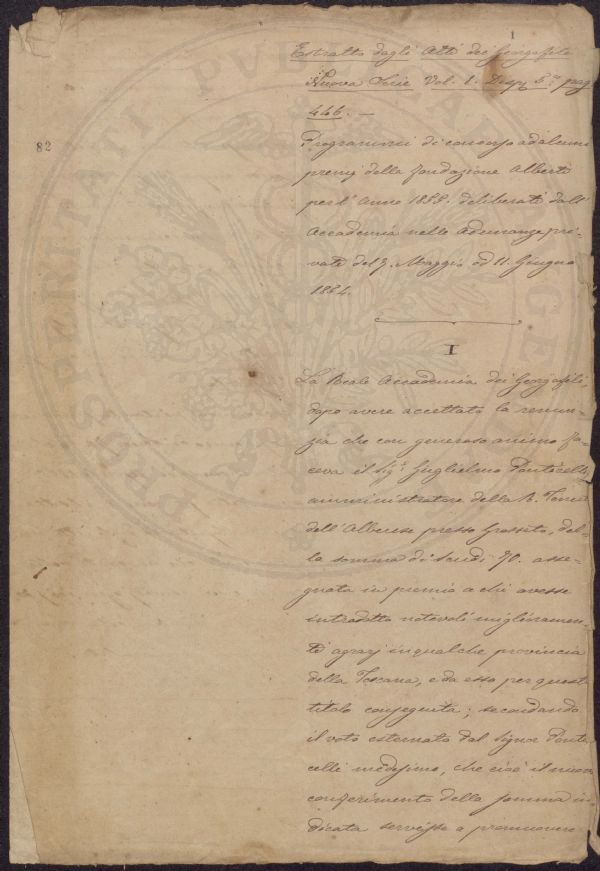 1
82
Estratto dagli Atti dei Georgofili
Nuova Serie Vol. 1. Disp 5.ª pag
446. —
Programmi di concorso ad alcuni
premj della fondazione Alberti
per l'Anno 1855. deliberati dall'
Accademia nelle Adunanze pri-
vate del 7. Maggio ed 11. Giugno
1854.
I
La Reale Accademia dei Georgofili,
dopo avere accettato la renun-
zia che con generoso animo fa-
ceva il Sig.r Guglielmo Ponticelli
amministratore della R. Tenuta
dell'Alberese presso Grosseto, del-
la somma di Scudi 70. asse-
gnata in premio a chi avesse
introdotto notevoli miglioramen-
ti agrarj in qualche provincia
della Toscana, e da esso per questo
titolo conseguita; secondando
il voto esternato dal Signor Ponti
celli medesimo, che cioè il nuovo
conferimento della somma in-
dicata servisse a promuovere
PROSPERITATI PUBLICAE AUGENDAE